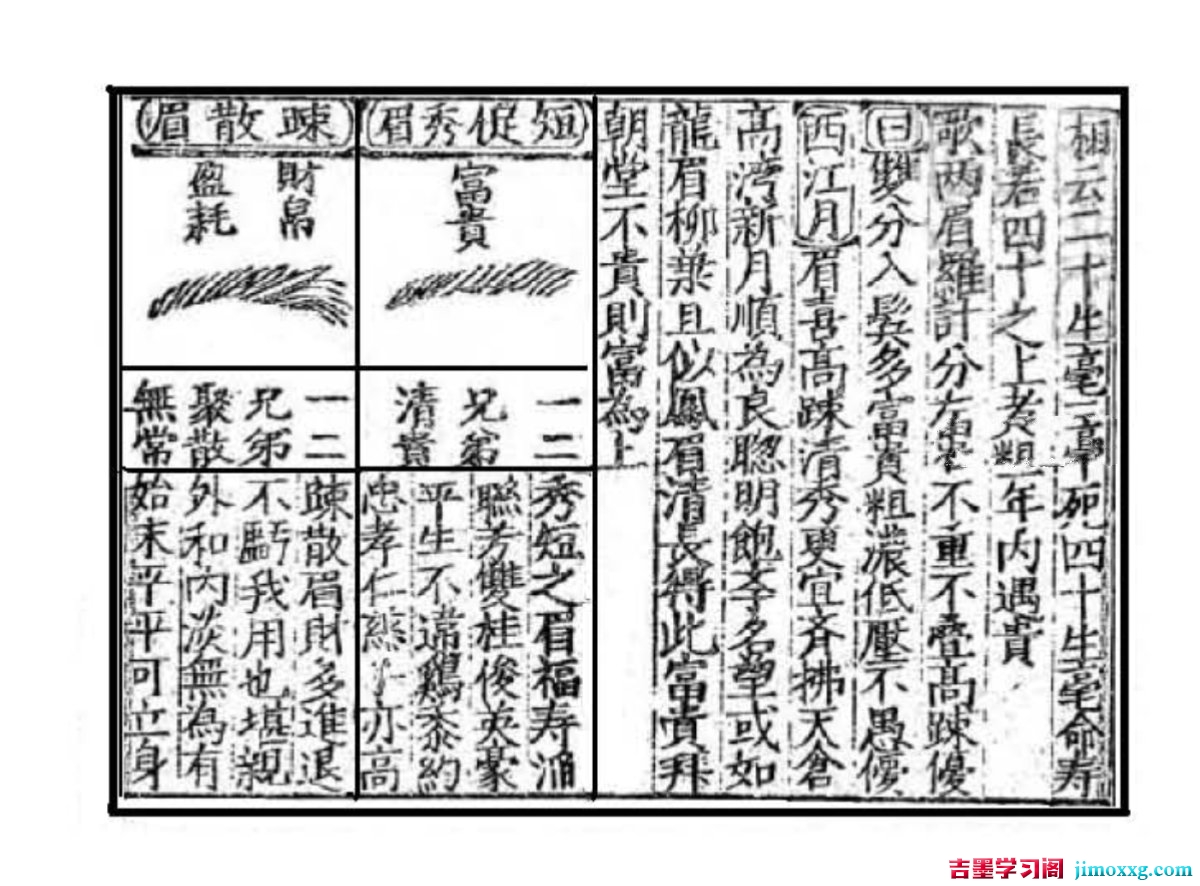 相云二十生毫三十死四十生毫命寿
長若四十之上者粗一年内遇貴
歌两眉羅計分左右不重不叠高踈優
曰雙分入鬂多富貴粗濃低壓不愚優
西江月眉喜高踈清秀更宜斉拂天倉
高湾新月順為良聡明飽斈名望或如
龍眉柳葉且似鳳眉清長得此富貴拜
朝堂不貴則富為上
短促秀眉
富貴
一二
兄弟
清貴
秀短之眉福寿
聮芳雙桂俊英豪
平生不違鷄黍約
忠孝仁亦高
踈散眉
財帛
盈耗
一二
兄弟
聚散
無常
踈散眉財多進退
不虧我用也堪親
外和内淡無為有
始末平平可立身
吉墨学习阁 jimoxxg.com